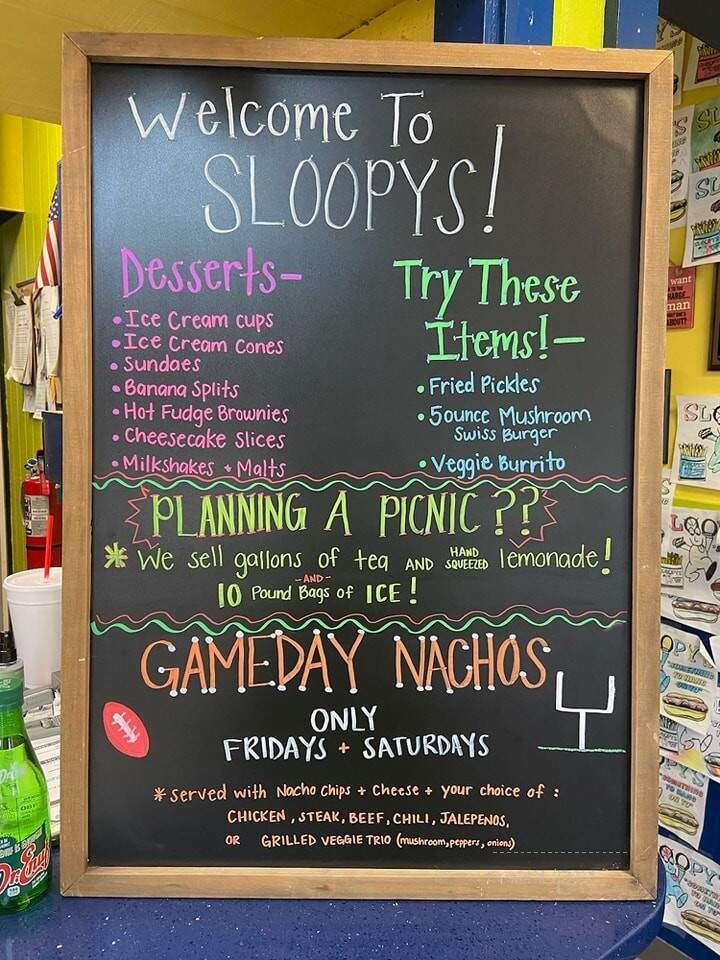 Welcome To
SLOOPYS!
Desserts-
• Ice Cream cups
• Ice Cream Cones
• Sundaes
• Banana Splits
• Hot Fudge Brownies
• Cheesecake Slices
• Milkshakes + Malts
Try These
Items!-
• Fried Pickles
• 5ounce Mushroom
Swiss Burger
• Veggie Burrito
PLANNING A PICNIC ??
* We sell gallons of tea AND HAND SQUEEZED lemonade!
-AND-
10 Pound Bags of ICE!
GAMEDAY NACHOS
ONLY
FRIDAYS + SATURDAYS
* served with Nacho Chips + Cheese + your choice of :
CHICKEN, STEAK, BEEF, CHILI, JALEPENOS,
OR GRILLED VEGGIE TRIO (mushroom, peppers, onions)